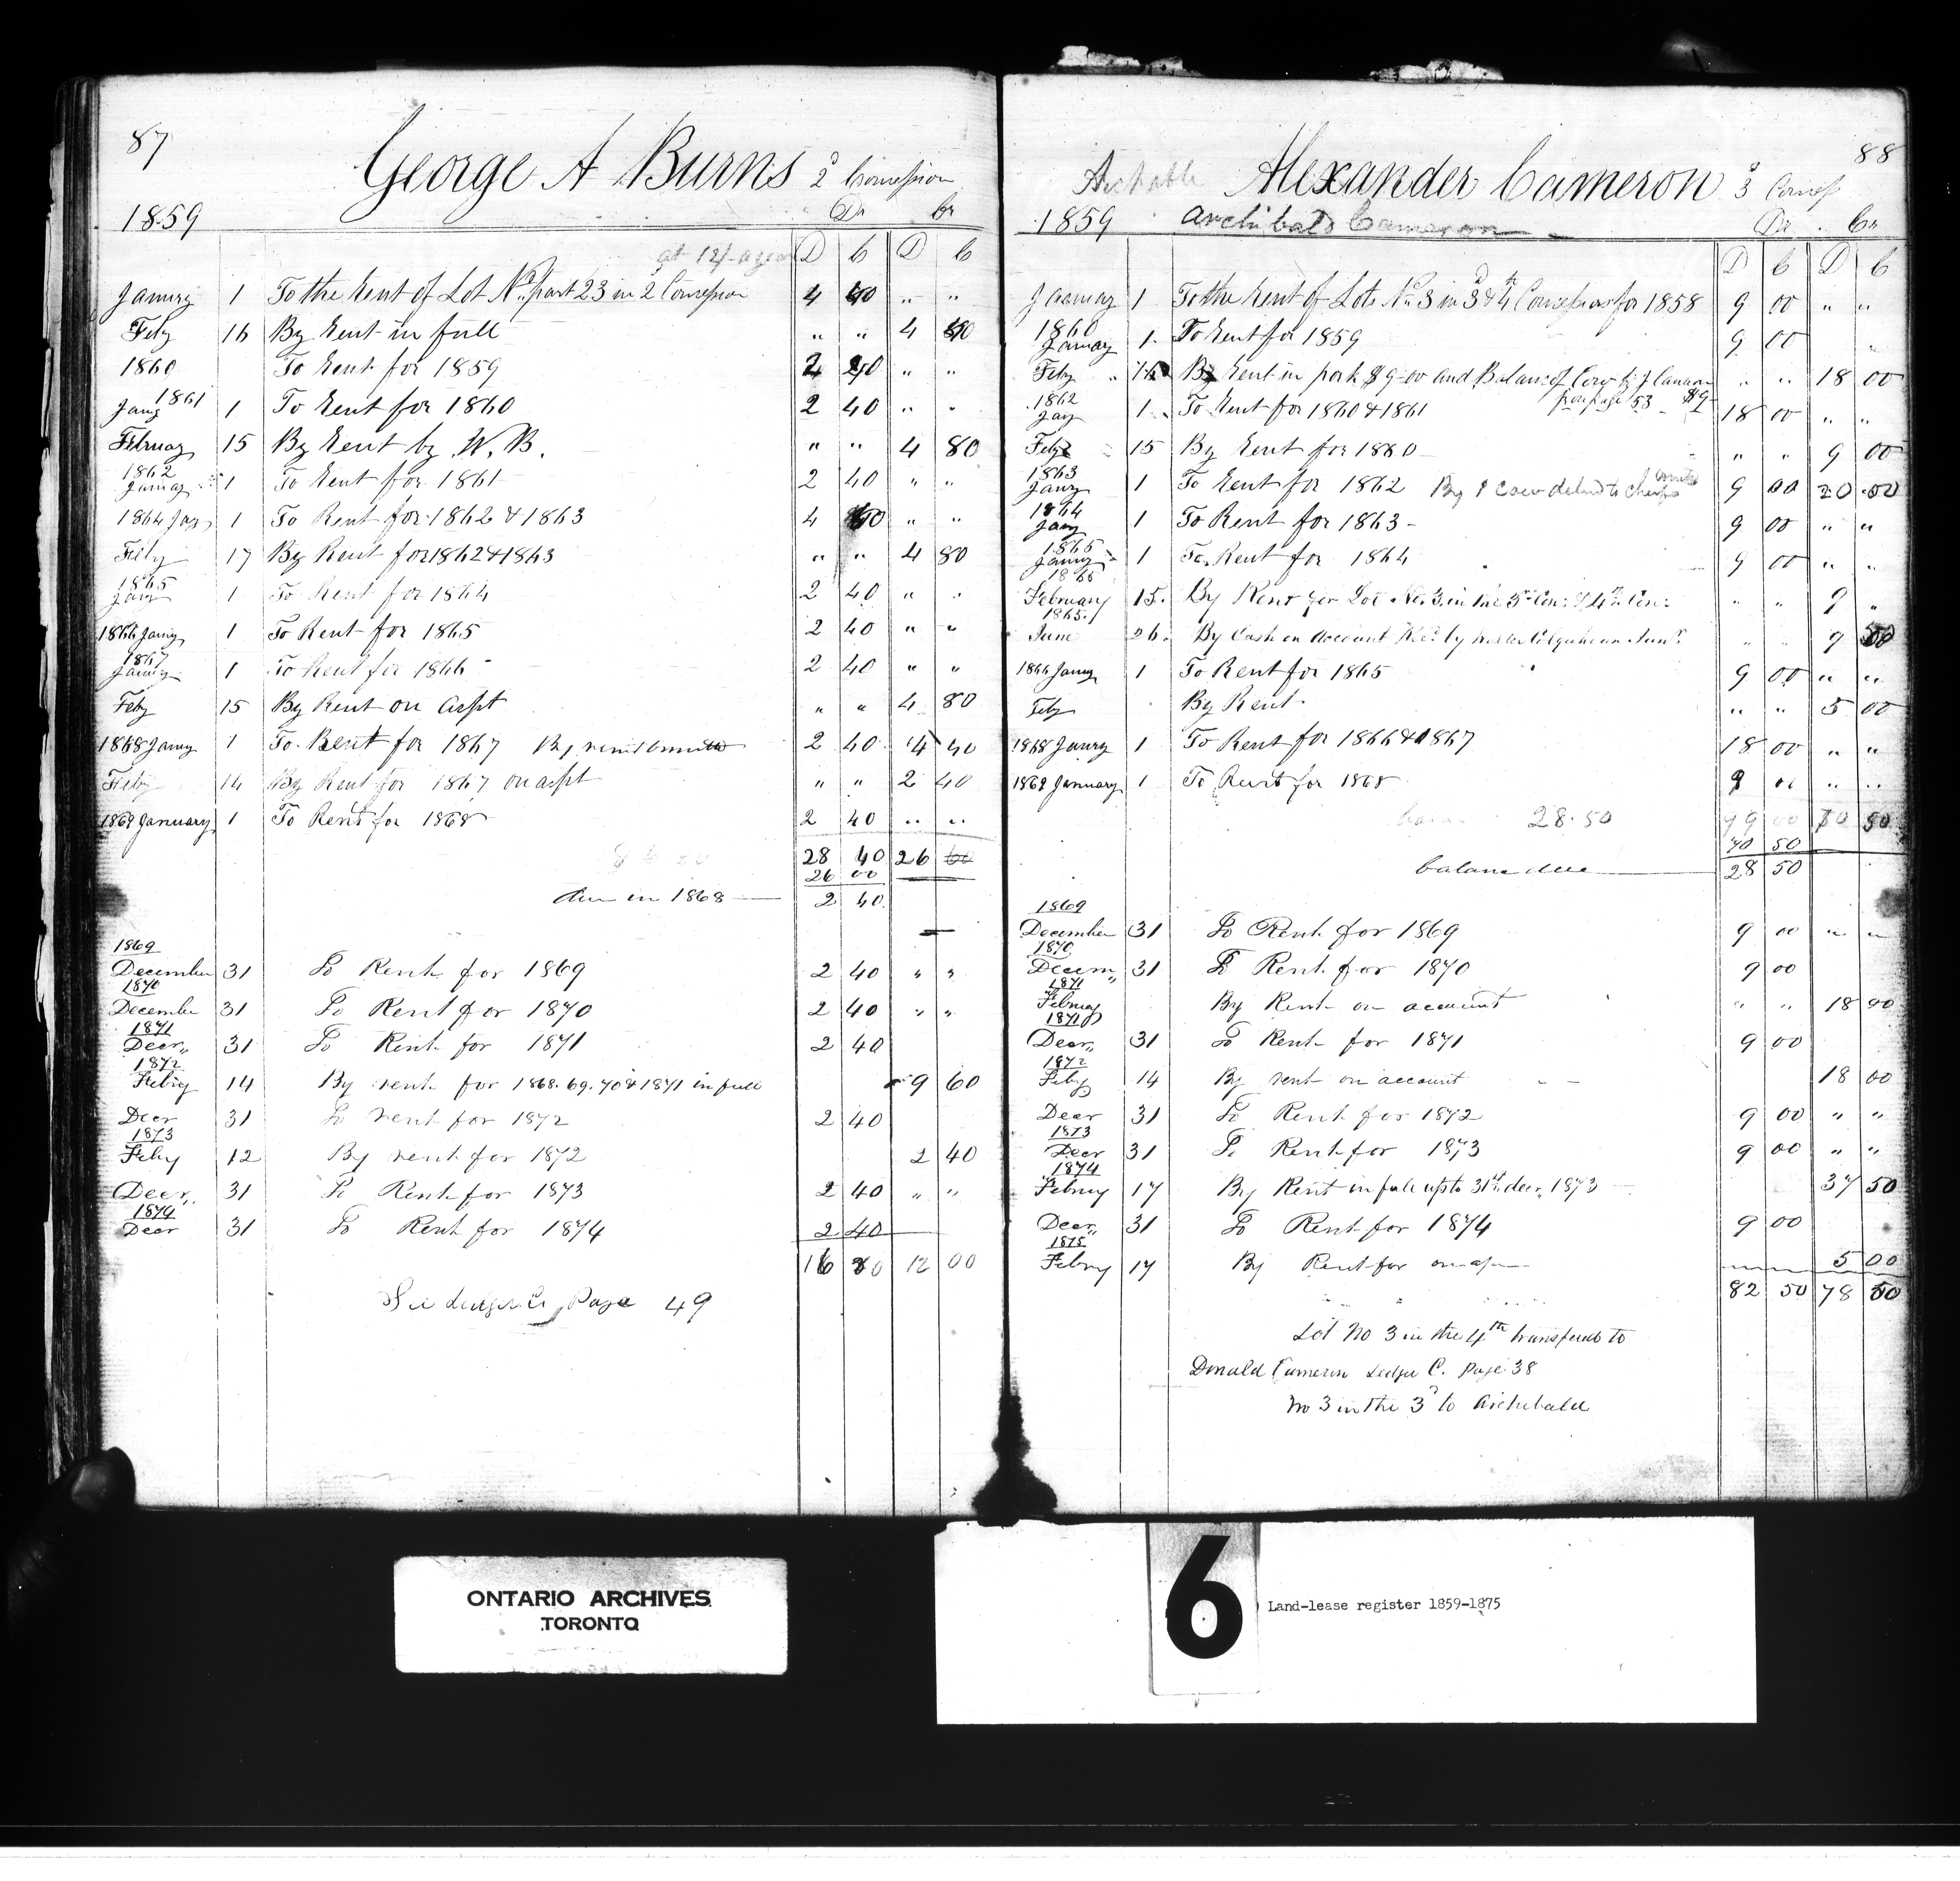 87
George A Burns 2d Concession
1859 Dr Cr
at 12/- a year D C D C
January 1 To the Rent of Lot No part 23 in 2d Concession 4 40 " "
Feby 16 By Rent in full " " 4 40
1860 To Rent for 1859 2 40 " "
1861
Jany 1 To Rent for 1860 2 40 " "
February 15 By Rent by W. B. " " 4 80
1862
January 1 To Rent for 1861 2 40 " "
1864 Jany 1 To Rent for 1862 & 1863 4 80 " "
Feby 17 By Rent for 1862 & 1863 " " 4 80
1865
Jany 1 To Rent for 1864 2 40 " "
1866 Jany 1 To Rent for 1865 2 40 " "
1867
Jany 1 To Rent for 1866 2 40 " "
Feby 15 By Rent on Acpt " " 4 80
1868 Jany 1 To Rent for 1867 By rent 2 40 4 40
Feby 14 By Rent for 1867 on acpt " " 2 40
1869 January 1 To Rent for 1868 2 40 " "
28 40 26 60
26 00
due in 1868 2 40
1869
December 31 To Rent for 1869 2 40 " "
1870
December 31 To Rent for 1870 2 40 " "
1871
Decr,, 31 To Rent for 1871 2 40
1872
Febry 14 By rent for 1868. 69. 70 & 1871 in full 9 60
Decr 31 To rent for 1872 2 40
1873
Feby 12 By rent for 1872 2 40
Decr,, 31 To Rent for 1873 2 40 " "
1874
Decr 31 To Rent for 1874 2 40
16 80 12 00
See Ledger C, Page 49
88
Alexander Cameron 3d Concess
1859 Archibald Cameron Dr Cr
D C D C
January 1 To the Rent of Lots No 3 in 3d & 4th Concessions for 1858 9 00 " "
1860
January 1. To Rent for 1859 9 00 "
Feby 16 By Rent in pork $9-00 and Balance of Cow by J Cameron " " 18 00
per page 53 $9-
1862
Jany 1. To Rent for 1860 & 1861 18 00 " "
Feby 15 By Rent for 1860 " " 9 00
1863
Jany 1 To Rent for 1862 By 1 Cow 9 00 20 00
1864
Jany 1 To Rent for 1863 - 9 00 " "
1865
Jany 1 To Rent for 1864 9 00 " "
1866
February 15. By Rent for Lot No. 3. in the 3rd Con: & 4th Con: " " 9 "
1865.
June 26. By Cash on Account Recd by " " 9 50
1866 Jany 1 To Rent for 1865 9 00 " "
Feby By Rent " " 5 00
1868 Janry 1 To Rent for 1866 & 1867 18 00 " "
1869 January 1 To Rent for 1868 9 00 " "
28.50 99 00 70 50
70 50
balance due 28 50
1869
December 31 To Rent for 1869 9 00 " "
1870
Decem,, 31 To Rent for 1870 9 00
1871
Febrary By Rent on account " " 18 00
1871
Decr,, 31 To Rent for 1871 9 00
1872
Feby 14 By rent on account 18 00
Decr 31 To Rent for 1872 9 00 " "
1873
Decr 31 To Rent for 1873 9 00 " "
1874
Febry 17 By Rent in full up to 31st decr,, 1873 37 50
Decr,, 31 To Rent for 1874 9 00
1875
Febry 17 By Rent for on a/c 5 00
82 50 78 50
Lot No 3 in the 4th transfered to
Donald Cameron Ledger C. page 38
No 3 in the 3d to Archibald
ONTARIO ARCHIVES
TORONTO
6 Land-lease register 1859-1875